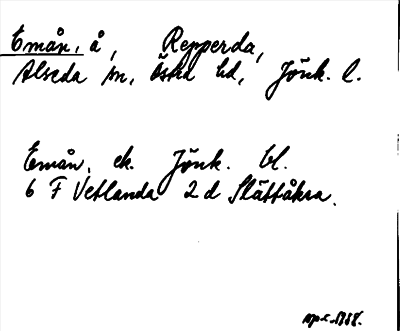 Emån, å, Repperda,
Alseda sn, Östra hd, Jönk. l.
Emån, ek. Jönk. bl.
6 F Vetlanda 2 d Slättåkra.